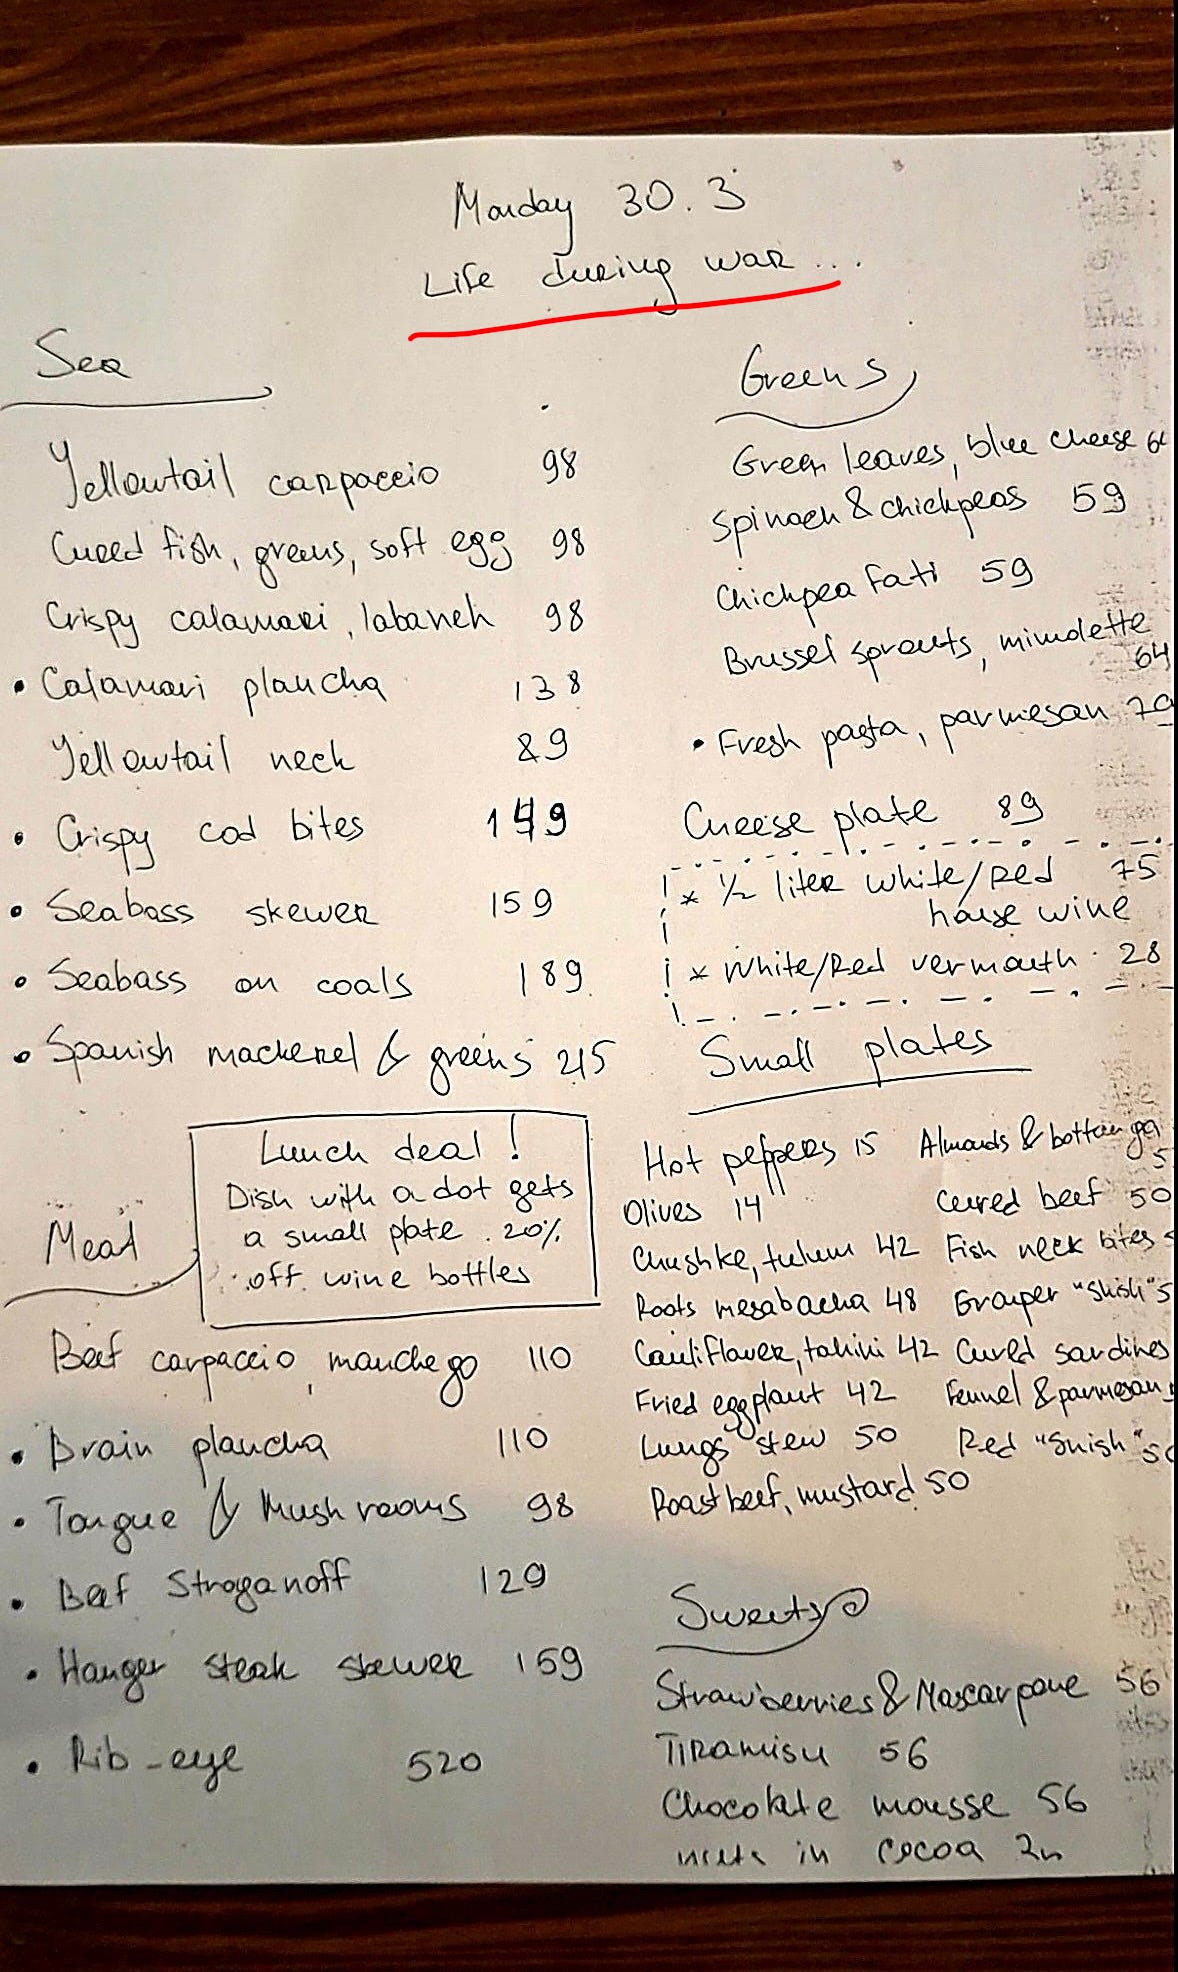 Monday 30.3
Life during war...
Sea
Yellowtail carpaccio 98
Cured fish, greens, soft egg 98
Crispy calamari, labaneh 98
• Calamari plancha 138
Yellowtail neck 89
• Crispy cod bites 149
• Seabass skewer 159
• Seabass on coals 189
• Spanish mackerel & greens 215
Lunch deal!
Dish with a dot gets
a small plate. 20%
off wine bottles
Meat
Beef carpaccio, manchego 110
• Brain plancha 110
• Tongue & Mushrooms 98
• Beef Stroganoff 129
• Hanger steak skewer 159
• Rib-eye 520
Greens
Green leaves, blue cheese
Spinach & chickpeas 59
Chickpea Fati 59
Brussel sprouts, mimolette
64
• Fresh pasta, parmesan 79
Cheese plate 89
* ½ liter white/red 75
house wine
* White/Red vermouth 28
Small plates
Hot peppers 15 Almonds &
Olives 14 Cured beef 50
Chushke, tulum 42 Fish neck bites
Roots mesabacha 48 Grouper "Shish"
Cauliflower, tahini 42 Cured sardines
Fried eggplant 42 Fennel & parmesan
Lungs stew 50 Red "Shish"
Roast beef, mustard 50
Sweets
Strawberries & Mascarpone 56
Tiramisu 56
Chocolate mousse 56
in cocoa